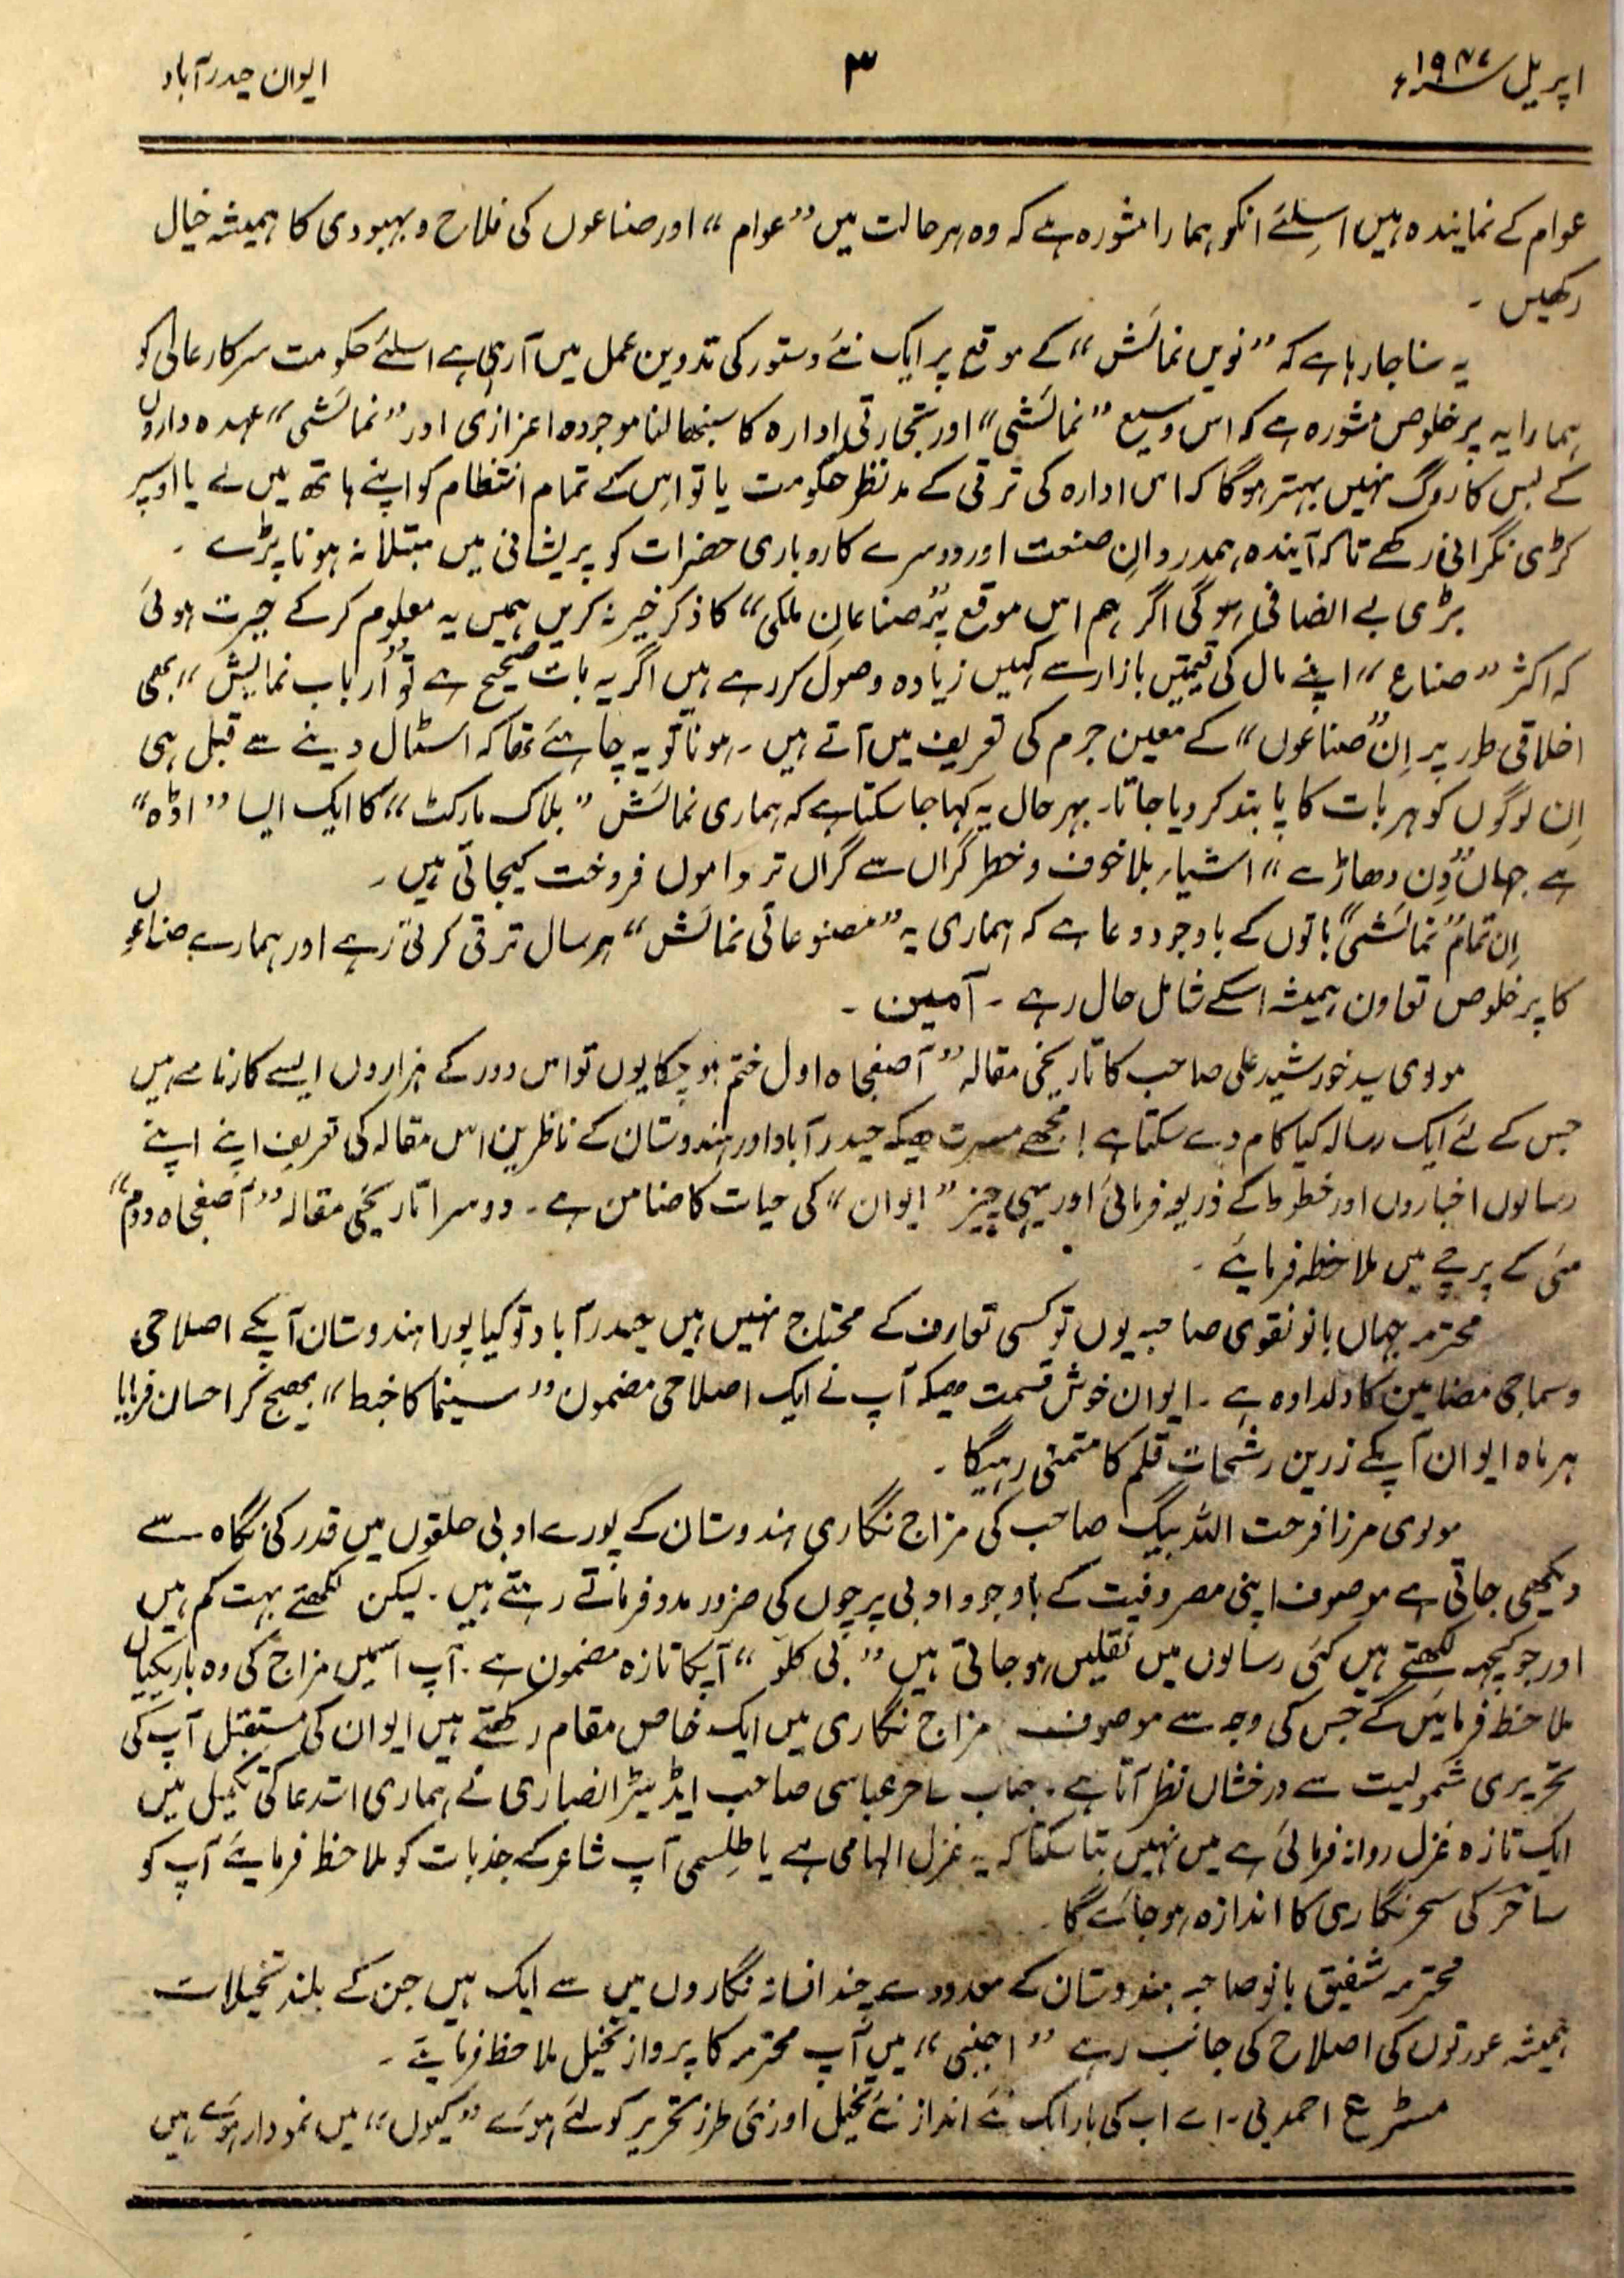 اپریل ۱۹۴۷ء
۳
ایوان حیدرآباد
عوام کے نمایندہ ہیں اسلئے انکو ہمارا مشورہ ہے کہ وہ ہر حالت میں ”عوام“ اور صناعوں کی فلاح و بہبودی کا ہمیشہ خیال
رکھیں ۔
یہ سنا جا رہا ہے کہ ”نویں نمائش“ کے موقع پر ایک نئے دستور کی تدوین عمل میں آ رہی ہے اسلئے حکومت سرکار عالی کو
ہمارا یہ پر خلوص مشورہ ہے کہ اس وسیع ”نمائشی“ اور تجارتی ادارہ کا سنبھالنا موجودہ اعزازی اور ”نمائشی“ عہدہ داروں
کے بس کا روگ نہیں بہتر ہوگا کہ اس ادارہ کی ترقی کے مد نظر حکومت یا تو اس کے تمام انتظام کو اپنے ہاتھ میں لے یا اوسپر
کڑی نگرانی رکھے تاکہ آیندہ ہمدردانِ صنعت اور دوسرے کاروباری حضرات کو پریشانی میں مبتلا نہ ہونا پڑے ۔
بڑی بے انصافی ہوگی اگر ہم اس موقع پر ”صناعان ملکی“ کا ذکر خیر نہ کریں ہمیں یہ معلوم کر کے حیرت ہوئی
کہ اکثر ”صناع“ اپنے مال کی قیمتیں بازار سے کہیں زیادہ وصول کر رہے ہیں اگر یہ بات صحیح ہے تو ”ارباب نمایش“ بھی
اخلاقی طور پر اِن ”صناعوں“ کے معین جرم کی تعریف میں آتے ہیں ۔ ہونا تو یہ چاہئے تھا کہ اسٹال دینے سے قبل ہی
اِن لوگوں کو ہر بات کا پابند کر دیا جاتا۔ بہر حال یہ کہا جا سکتا ہے کہ ہماری نمائش ”بلاک مارکٹ“ کا ایک ایسا ”اڈہ“
ہے جہاں ”دِن دھاڑے“ اشیاء بلا خوف و خطر گراں سے گراں تر داموں فروخت کیجاتی ہیں ۔
اِن تمام ”نمائشی“ باتوں کے باوجود دعا ہے کہ ہماری یہ ”مصنوعاتی نمائش“ ہر سال ترقی کرتی رہے اور ہمارے صناعوں
کا پر خلوص تعاون ہمیشہ اسکے شامل حال رہے ۔ آمین ۔
مولوی سید خورشید علی صاحب کا تاریخی مقالہ ”آصفجاہ اول ختم ہو چکا یوں تو اس دور کے ہزاروں ایسے کارنامے ہیں
جس کے لئے ایک رسالہ کیا کام دے سکتا ہے ! مجھے مسرت ھیکہ حیدرآباد اور ہندوستان کے ناظرین اس مقالہ کی تعریف اپنے اپنے
رسالوں اخباروں اور خطوط کے ذریعہ فرمائی اور یہی چیز ”ایوان“ کی حیات کا ضامن ہے ۔ دوسرا تاریخی مقالہ ”آصفجاہ دوم“
مئی کے پرچے میں ملاحظہ فرمایئے ۔
محترمہ جہاں بانو نقوی صاحبہ یوں تو کسی تعارف کے محتاج نہیں ہیں حیدرآباد تو کیا پورا ہندوستان آپکے اصلاحی
و سماجی مضامین کا دلدادہ ہے ۔ ایوان خوش قسمت ھیکہ آپ نے ایک اصلاحی مضمون ”سینما کا خبط“ بھیج کر احسان فرمایا
ہر ماہ ایوان آپکے زرین رشحات قلم کا متمنی رہیگا ۔
مولوی مرزا فرحت اللہ بیگ صاحب کی مزاج نگاری ہندوستان کے پورے ادبی حلقوں میں قدر کی نگاہ سے
دیکھی جاتی ہے موصوف اپنی مصروفیت کے باوجود ادبی پرچوں کی ضرور مدد فرماتے رہتے ہیں ۔ لیکن لکھتے بہت کم ہیں
اور جو کچھ لکھتے ہیں کئی رسالوں میں نقلیں ہو جاتی ہیں ”بی کلو“ آپکا تازہ مضمون ہے ۔ آپ اسمیں مزاج کی وہ باریکیاں
ملاحظہ فرمائیں گے جس کی وجہ سے موصوف مزاج نگاری میں ایک خاص مقام رکھتے ہیں ایوان کی مستقبل آپ کی
تحریری شمولیت سے درخشاں نظر آتا ہے ۔ جناب ساحر عباسی صاحب ایڈیٹر انصاری نے ہماری استدعا کی تکمیل میں
ایک تازہ غزل روانہ فرمائی ہے میں نہیں بتا سکتا کہ یہ غزل الہامی ہے یا طلسمی آپ شاعر کے جذبات کو ملاحظہ فرمایئے آپ کو
ساحر کی سحر نگاری کا اندازہ ہو جائے گا ۔
محترمہ شفیق بانو صاحبہ ہندوستان کے معدودے چند افسانہ نگاروں میں سے ایک ہیں جن کے بلند تخیلات
ہمیشہ عورتوں کی اصلاح کی جانب رہے ”اجنبی“ میں آپ محترمہ کا پرواز تخیل ملاحظہ فرمایئے ۔
مسٹر ع احمد بی ۔ اے اب کی بار ایک نئے انداز نئے تخیل اور نئی طرز تحریر کو لئے ہوئے ”کیوں“ میں نمودار ہوئے ہیں